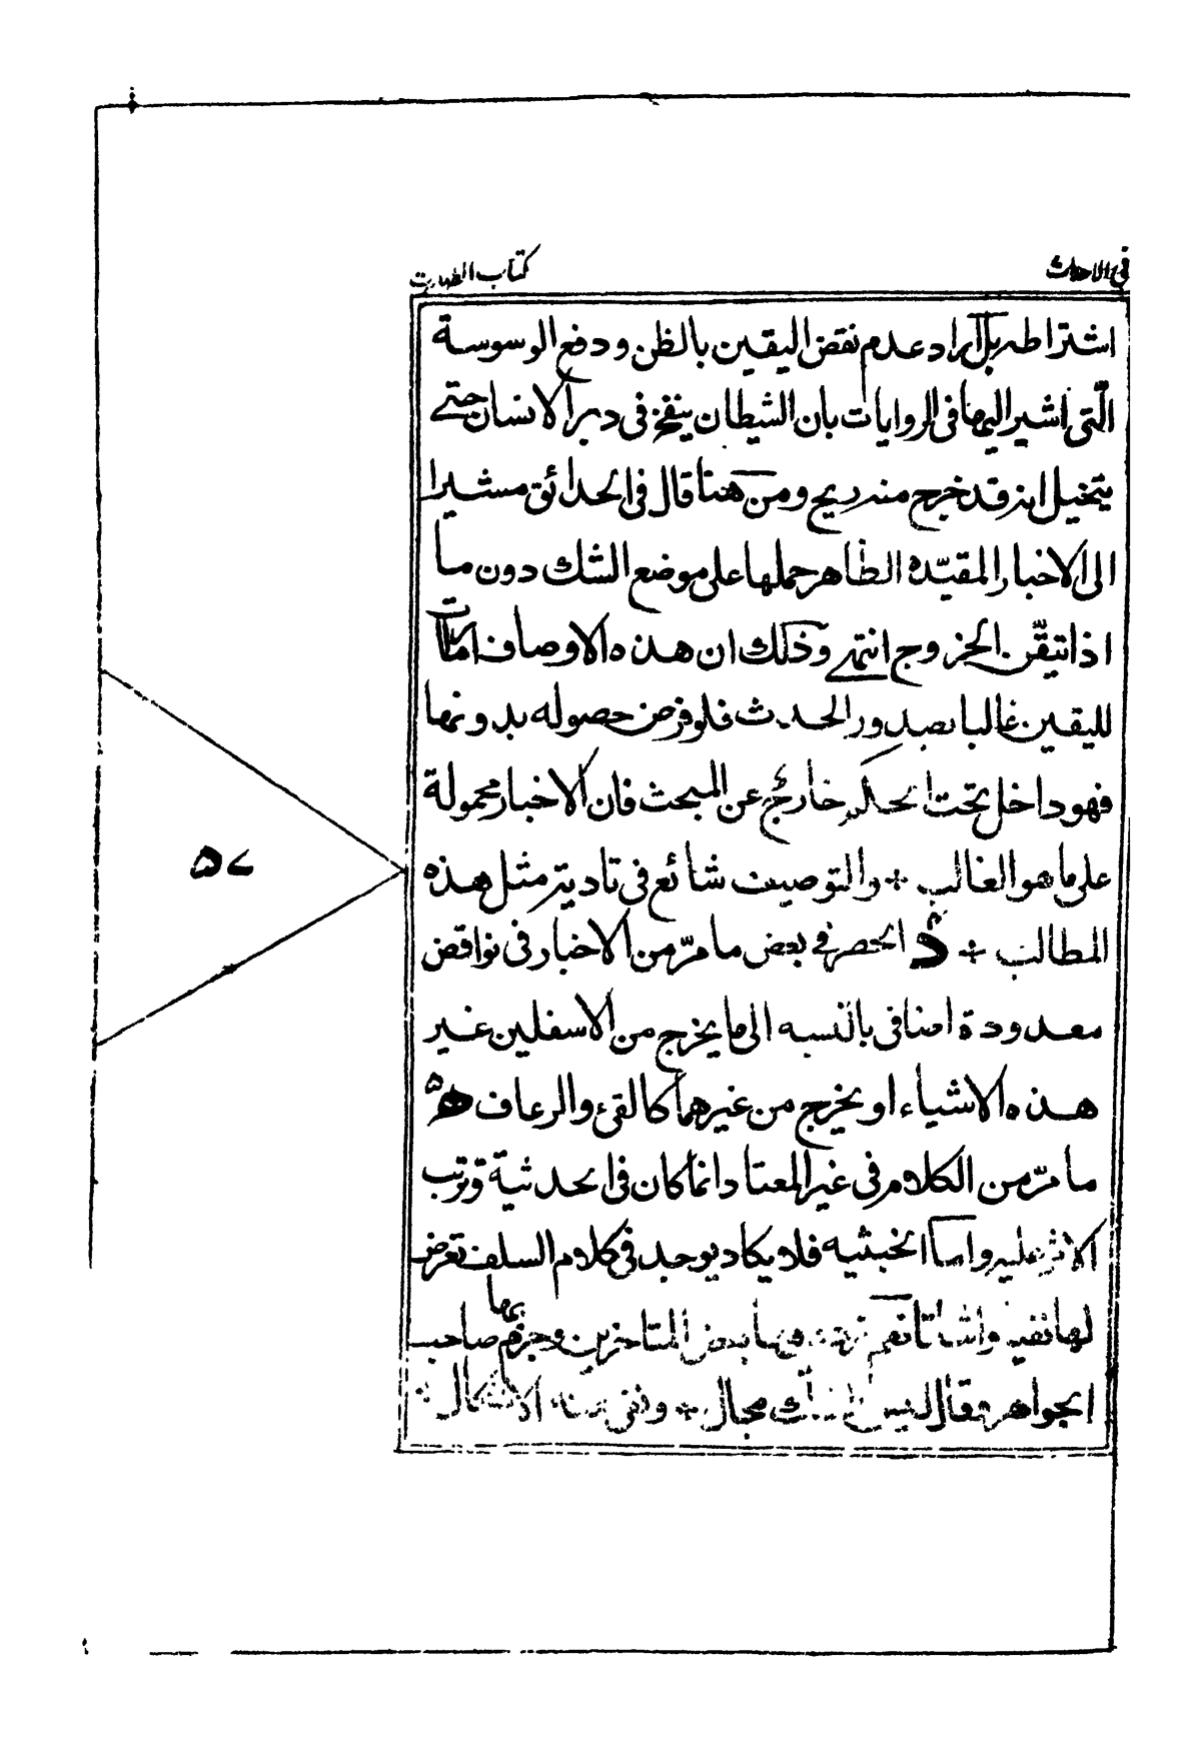 في الاحداث
كتاب الطهارت
اشتراطه بل اراد عدم نقض اليقين بالظن ودفع الوسوسة
الّتى اشير اليها فى الروايات بان الشيطان ينفخ فى دبر الانسان حتے
يتخيل انه قد خرج منه ريح ومن هنا قال فى الحدائق مشيرا
الى الاخبار المقيّده الظاهر حملها على موضع الشك دون ما
اذا تيقّن الخروج انتهے وذلك ان هذه الاوصاف امارات
لليقين غالبا بصدور الحدث فلو فرض حصوله بدونها
فهو داخل تحت الحكم خارج عن المبحث فان الاخبار محمولة
على ما هو الغالب + والتوصيف شائع فى تاديته مثل هذه
المطالب + د الحصر فے بعض ما مرّ من الاخبار فى نواقض
معدودة اضافى بالنسبه الى ما يخرج من الاسفلين غير
هذه الاشياء او يخرج من غيرهما كالقئ والرعاف ه
ما مرّ من الكلام فى غير المعتاد انما كان فى الحدثية وترتب
الاثر عليه واما الخبثيه فلا يكاد يوجد فى كلام السلف تعرض
لها نفيا واثباتا نعم فيها بعض المتاخرين وجزم بها صاحب
الجواهر فقال ليس للشك مجال + ونفى عنه الاشكال
۵۷